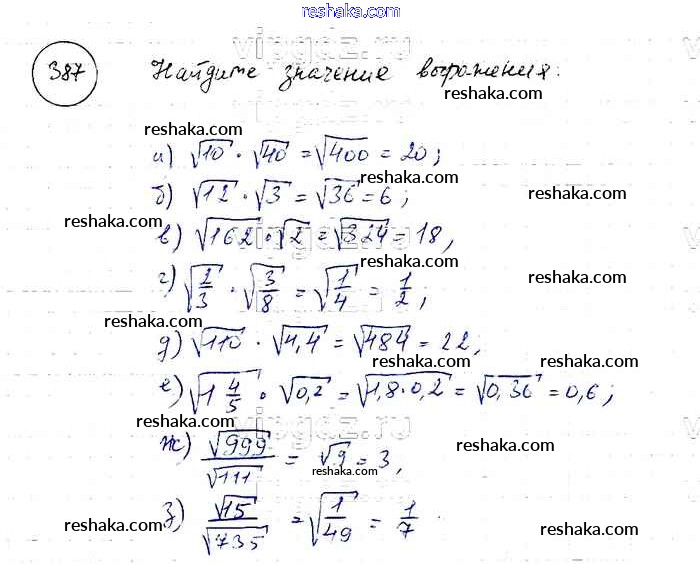 reshaka.com
387 Найдите значение выражения:
reshaka.com
reshaka.com
а) √10 · √40 = √400 = 20;
reshaka.com
б) √12 · √3 = √36 = 6;
reshaka.com
reshaka.com
в) √162 · √2 = √324 = 18,
reshaka.com
г) √2/3 · √3/8 = √1/4 = 1/2;
reshaka.com
д) √110 · √4,4 = √484 = 22,
reshaka.com
reshaka.com
е) √1 4/5 · √0,2 = √1,8·0,2 = √0,36 = 0,6;
reshaka.com
reshaka.com
ж) √999/√111 = √9 = 3,
reshaka.com
reshaka.com
з) √15/√735 = √1/49 = 1/7
reshaka.com